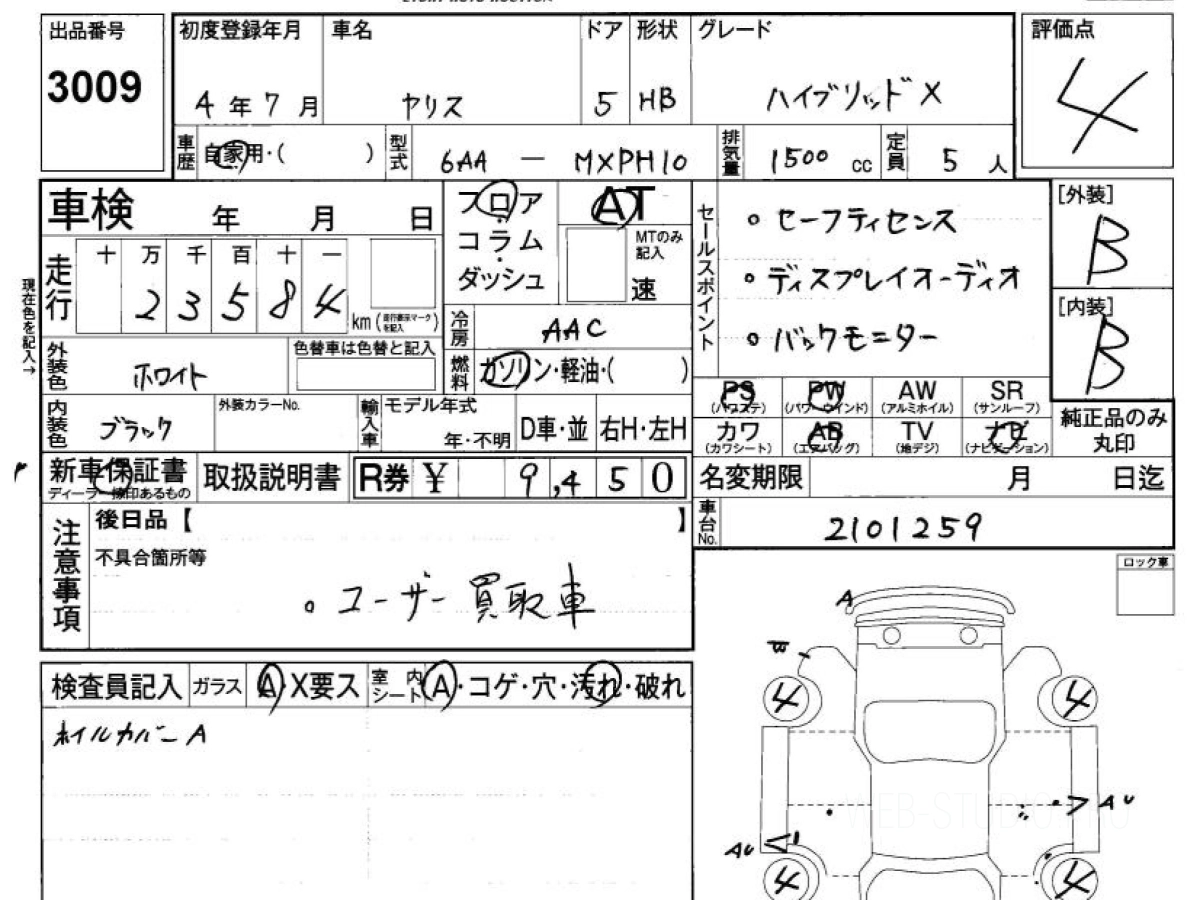 出品番号
3009
初度登録年月 車名 ドア 形状 グレード
4年7月 ヤリス 5 HB ハイブリッド X
評価点
4
車歴 自家用・( ) 型式 6AA — MXPH10 排気量 1500 cc 定員 5 人
車検 年 月 日
フロア
コラム
ダッシュ
AT
MTのみ記入
速
セールスポイント
。セーフティセンス
。ディスプレイオーディオ
。バックモニター
[外装]
B
[内装]
B
現在色を記入→
走行
十 万 千 百 十 一
2 3 5 8 4
km
冷房 AAC
燃料 ガソリン・軽油・( )
外装色 ホワイト
色替車は色替と記入
内装色 ブラック
外装カラーNo.
輸入車
モデル年式
年・不明
D車・並 右H・左H
PS (パワステ) PW (パワーウインド) AW (アルミホイル) SR (サンルーフ)
カワ (カワシート) AB (エアバッグ) TV (地デジ) ナビ (ナビゲーション)
純正品のみ
丸印
新車保証書
ディーラー捺印あるもの
取扱説明書
R券 ¥ 9,450
名変期限 月 日迄
車台No. 2101259
注意事項
後日品【 】
不具合箇所等
。ユーザー買取車
ロック車
検査員記入 ガラス A・X要ス 室内シート A・コゲ・穴・汚れ・破れ
ホイルカバーA
A
4 4
AU
AU
4 4
WEB-STUDIO